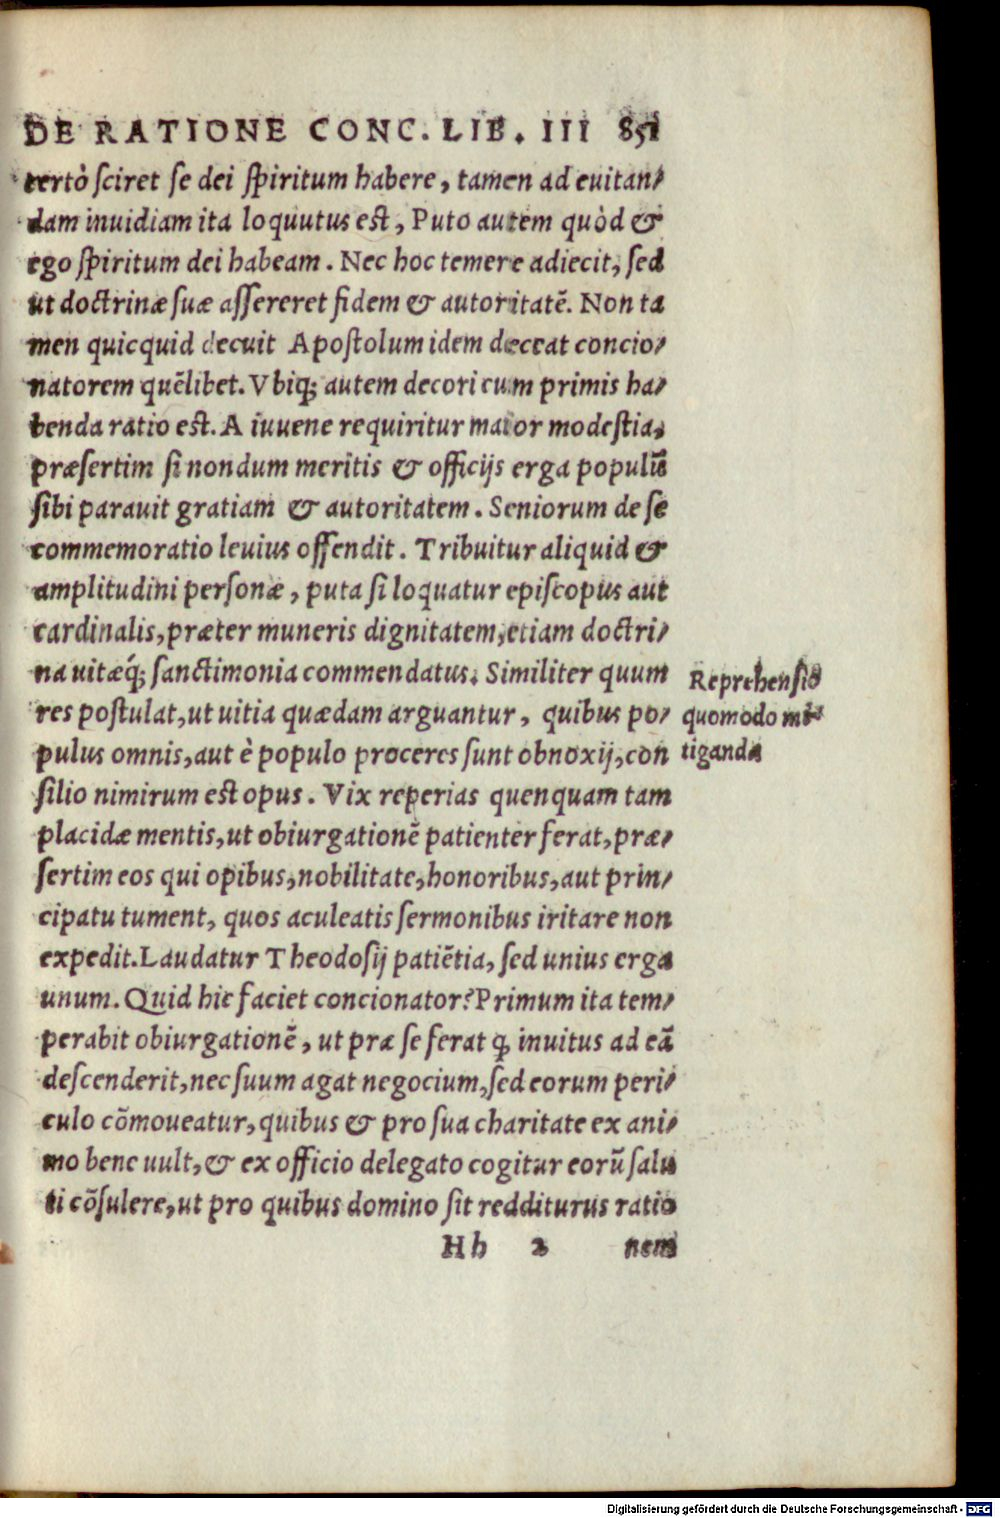 DE RATIONE CONC. LIB. III 851
certò sciret se dei spiritum habere, tamen ad euitan-
dam inuidiam ita loquutus est, Puto autem quòd &
ego spiritum dei habeam. Nec hoc temere adiecit, sed
ut doctrinæ suæ assereret fidem & autoritatē. Non ta
men quicquid decuit Apostolum idem deceat concio-
natorem quēlibet. Vbiq; autem decori cum primis ha-
benda ratio est. A iuuene requiritur maior modestia,
præsertim si nondum meritis & officijs erga populū
sibi parauit gratiam & autoritatem. Seniorum de se
commemoratio leuius offendit. Tribuitur aliquid &
amplitudini personæ, puta si loquatur episcopus aut
cardinalis, præter muneris dignitatem, etiam doctri-
na uitæq́; sanctimonia commendatus. Similiter quum
res postulat, ut uitia quædam arguantur, quibus po-
pulus omnis, aut è populo proceres sunt obnoxij, con
silio nimirum est opus. Vix reperias quenquam tam
placidæ mentis, ut obiurgationē patienter ferat, præ-
sertim eos qui opibus, nobilitate, honoribus, aut prin-
cipatu tument, quos aculeatis sermonibus iritare non
expedit. Laudatur Theodosij patiētia, sed unius erga
unum. Quid hic faciet concionator? Primum ita tem-
perabit obiurgationē, ut præ se ferat ꝙ inuitus ad eā
descenderit, nec suum agat negocium, sed eorum peri-
culo cōmoueatur, quibus & pro sua charitate ex ani-
mo bene uult, & ex officio delegato cogitur eorū salu
ti cōsulere, ut pro quibus domino sit redditurus ratio
Hh 2 nem
Reprehensio
quomodo mi-
tiganda
Digitalisierung gefördert durch die Deutsche Forschungsgemeinschaft - DFG